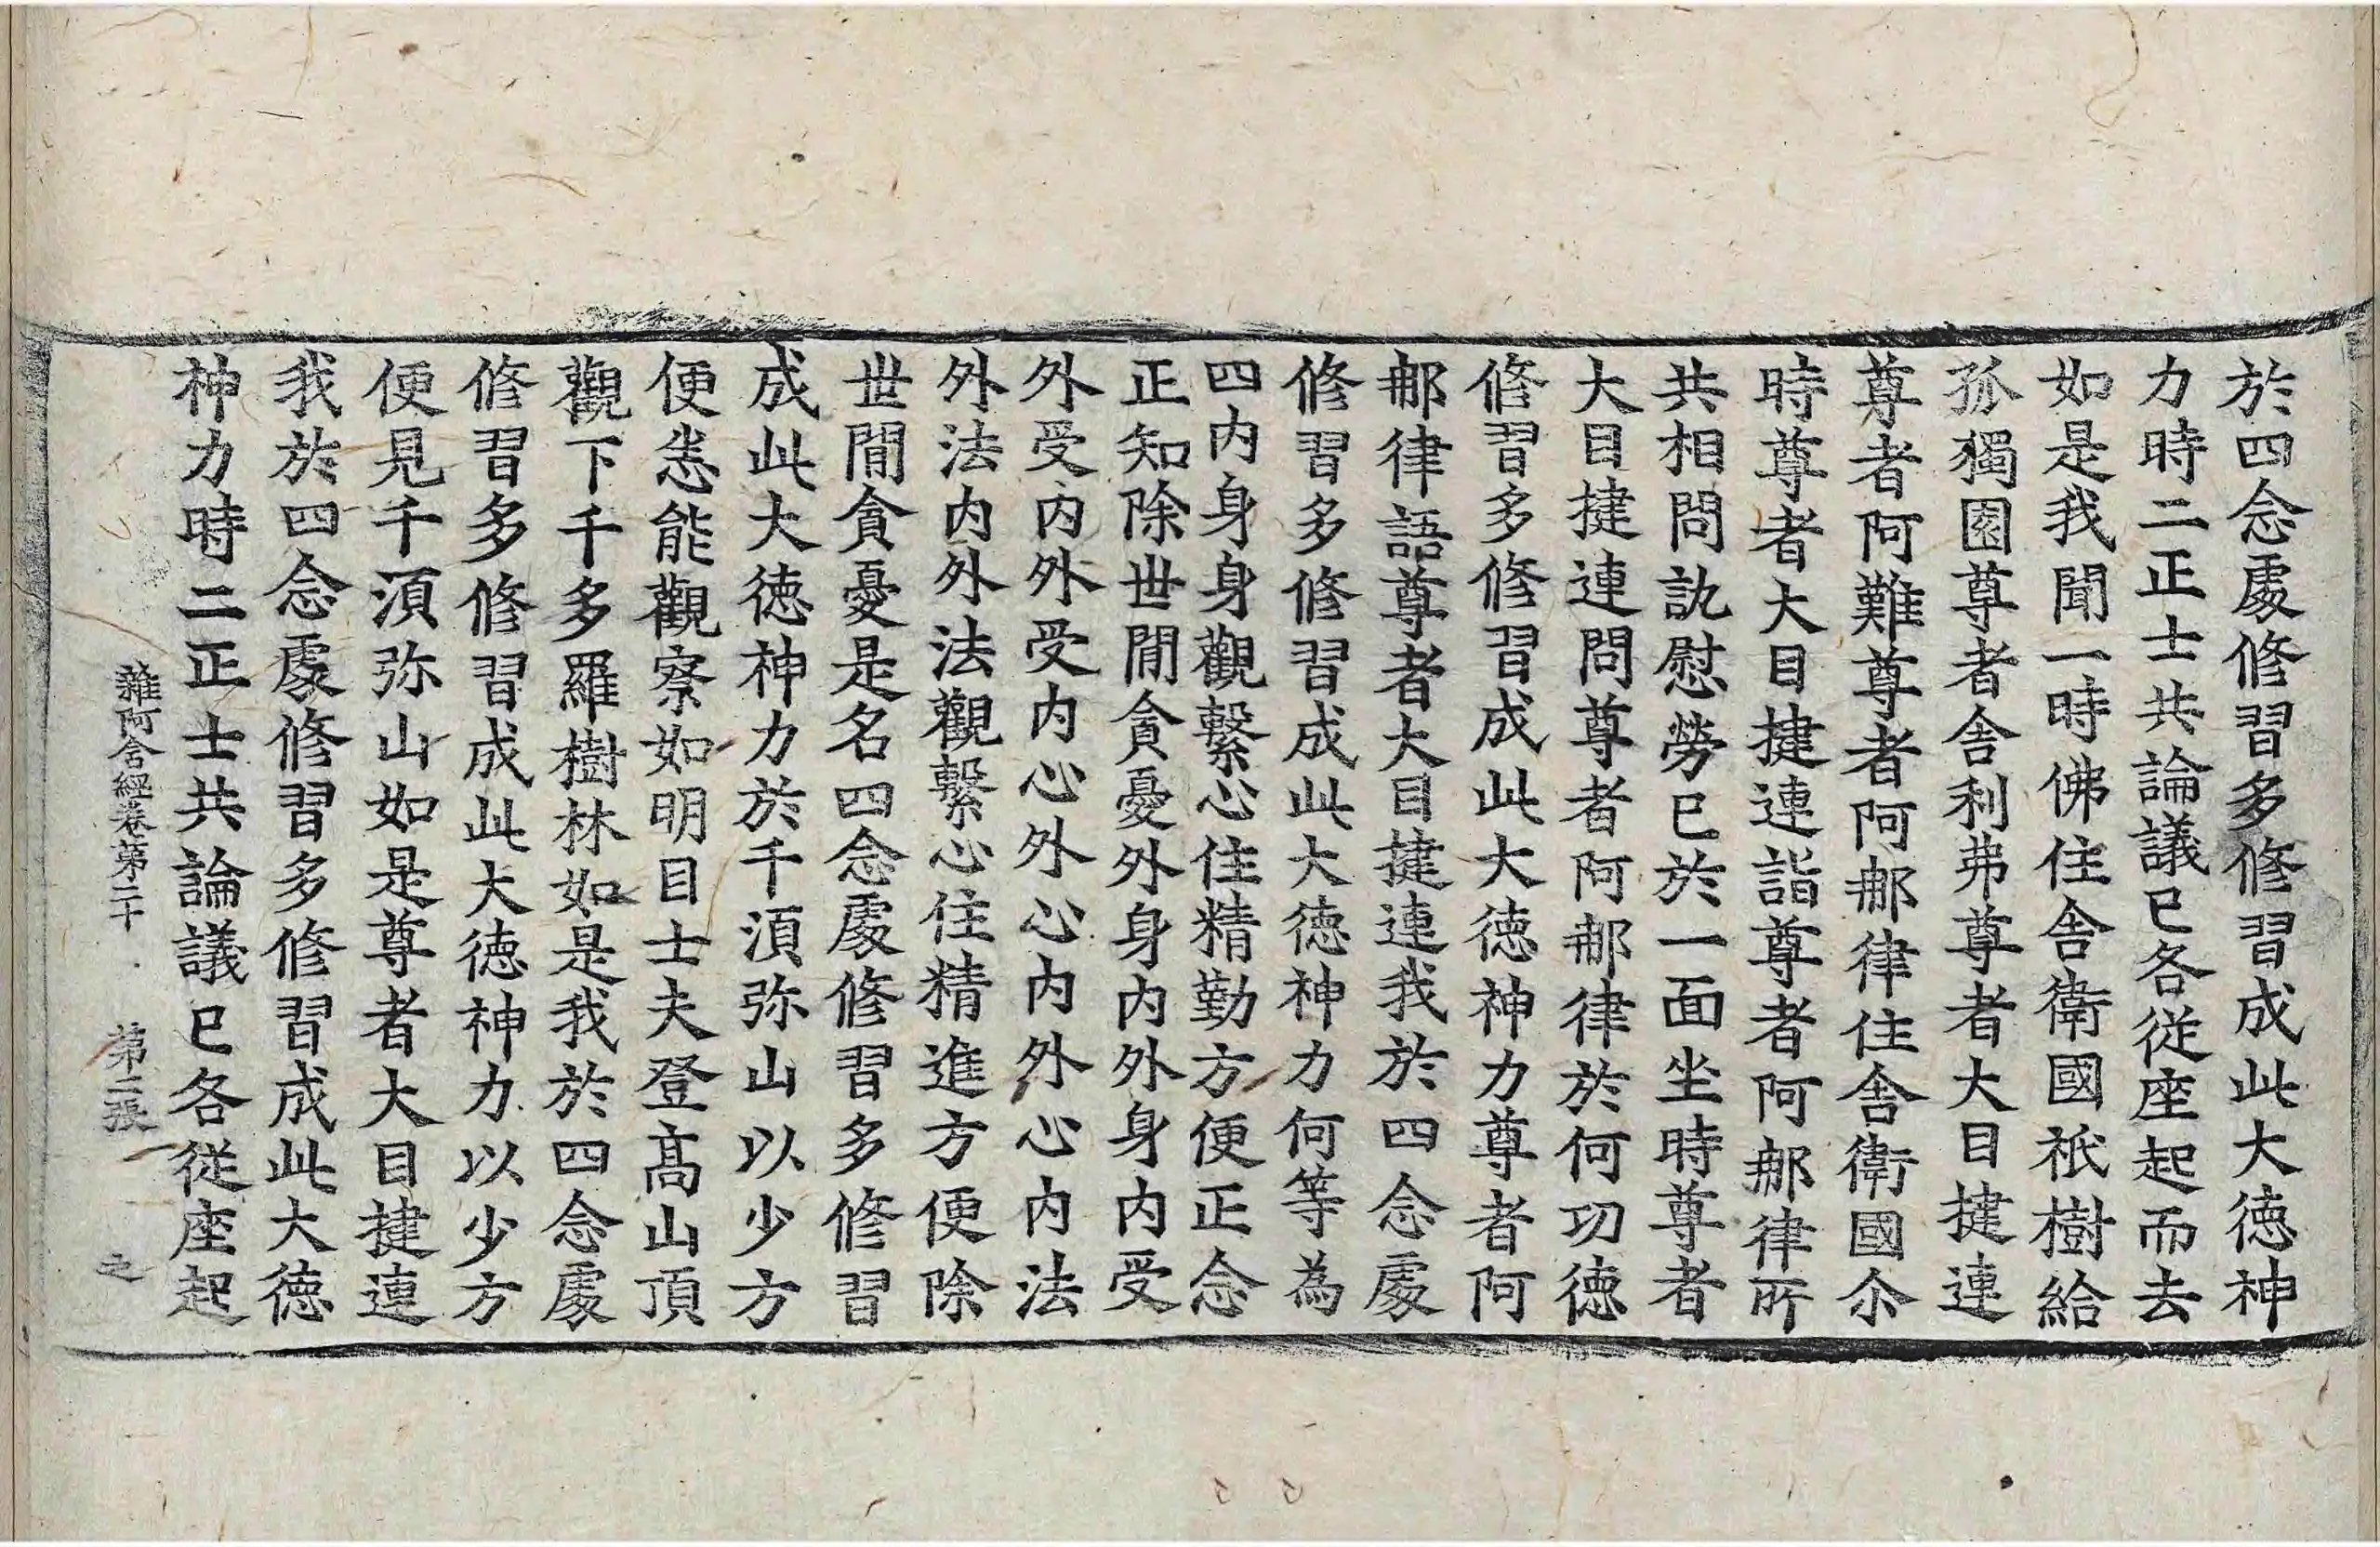 於四念處修習多修習成此大德神
力時二正士共論議已各從座起而去
如是我聞一時佛住舍衛國祇樹給
孤獨園尊者舍利弗尊者大目揵連
尊者阿難尊者阿那律住舍衛國尒
時尊者大目揵連詣尊者阿那律所
共相問訊慰勞已於一面坐時尊者
大目揵連問尊者阿那律於何功德
修習多修習成此大德神力尊者阿
那律語尊者大目揵連我於四念處
修習多修習成此大德神力何等為
四内身身觀繫心住精勤方便正念
正知除世間貪憂外身内外身内受
外受内外受内心外心内外心内法
外法内外法觀繫心住精進方便除
世間貪憂是名四念處修習多修習
成此大德神力於千湏弥山以少方
便悉能觀察如明目士夫登髙山頂
觀下千多羅樹林如是我於四念處
修習多修習成此大德神力以少方
便見千湏弥山如是尊者大目揵連
我於四念處修習多修習成此大德
神力時二正士共論議已各從座起
雜阿含經卷第二十 第二張 之